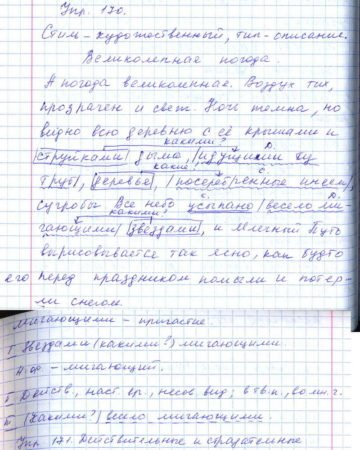 Упр. 170.
Стиль – художественный, тип – описание.
Великолепная погода.
А погода великолепная. Воздух тих,
прозрачен и свеж. Ночь темна, но
видно всю деревню с её крышами и
какими?
струйками дыма, идущими из
какие?
трубы, деревья, посеребренные инеем,
сугробы. Все небо усыпано весело ми-
какими?
гающими звездами, и Млечный Путь
вырисовывается так ясно, как будто
его перед праздником помыли и потер-
ли снегом.
Мигающими – причастие.
I Звездами (какими?) мигающими.
Н.ф. – мигающий.
II Действ., наст. вр., несов. вид; в тв.п., во мн.ч.
III (Какими?) весело мигающими.
Упр. 171. Действительные и страдательные